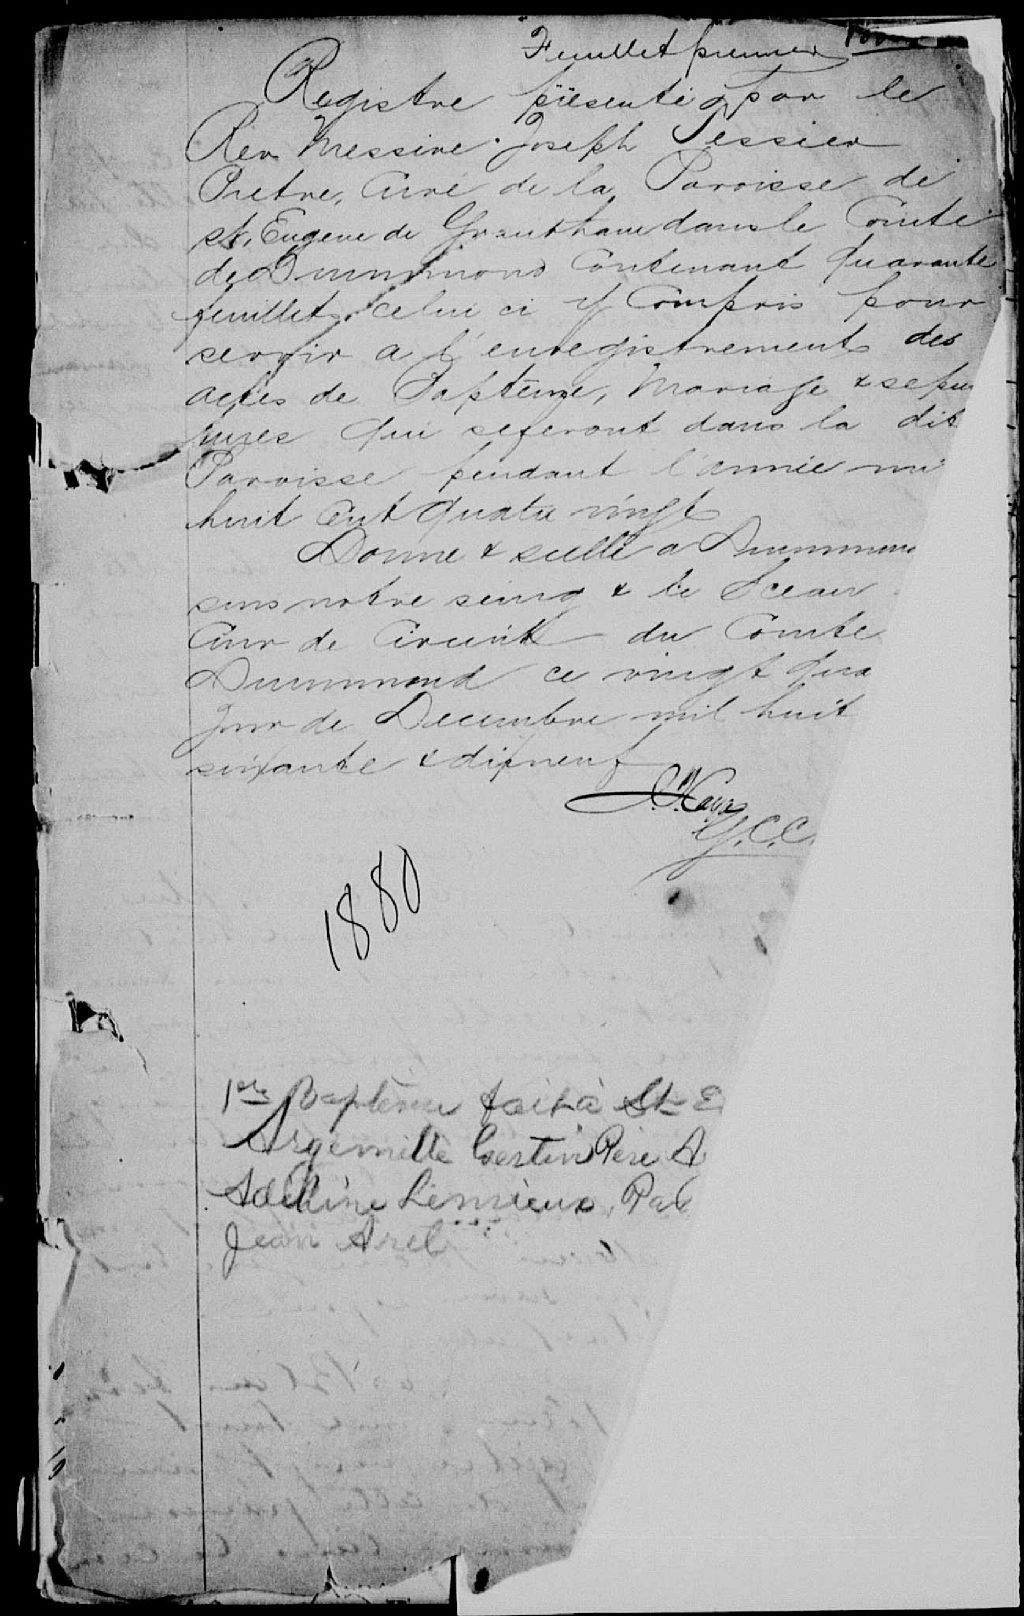 Feuillet premier
Registre présenté par le
Rev. Messire Joseph Tessier
Pretre, Curé de la Paroisse de
St. Eugene de Grantham dans le Comté
de Drummond Contenant Quarante
feuillets celui ci y Compris pour
servir a l'enregistrements des
actes de Baptême, Mariage & sepul
tures qui seferont dans la dit
Paroisse pendant l'année mil
huit Cent Quatre vingt
Donné & scellé a Drummond
sous notre seing & le Sceau
Cour de Circuit du Comte
Drummond ce vingt qua
jour de Decembre mil huit
soixante & dixneuf
G.C.C.
1880
1er Baptême fait à St E
Argemille Joseph Père A
Adéline Lemieux, Par
Jean Arel